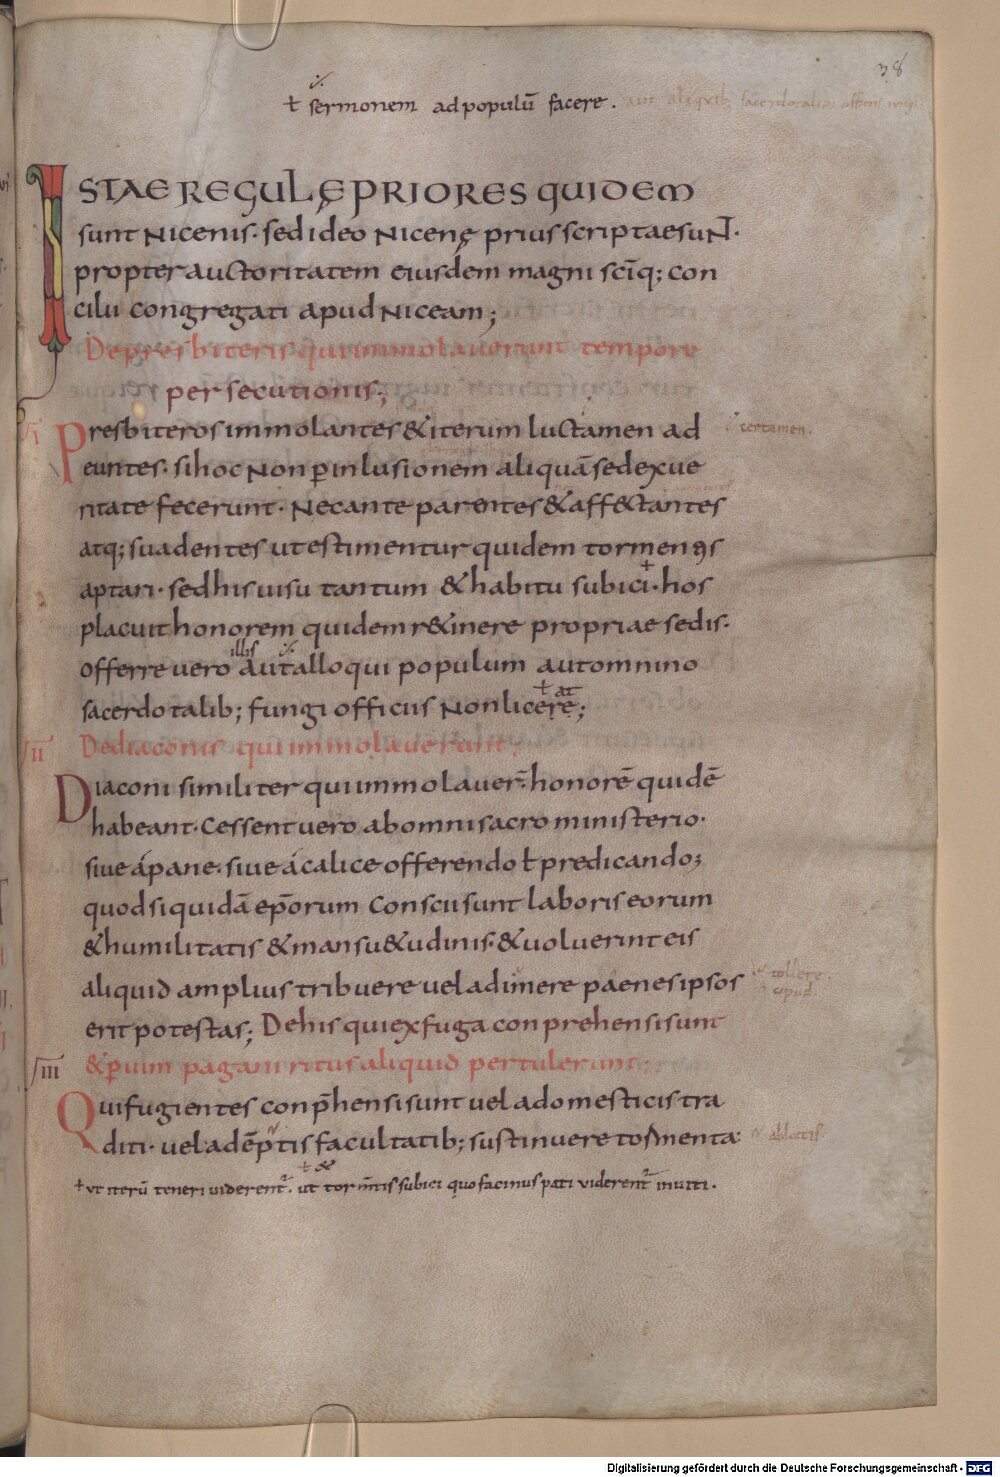 38
ƚ sermonem ad populū facere. aut aliquib; sacerdotalib;
ISTAE REGULĘ PRIORES QUIDEM
sunt Nicenis. sed ideo Nicenę prius scriptae suNT.
propter auctoritatem eiusdem magni scīq; con
cilii congregati apud Niceam;
De presbiteris qui immolaverunt tempore
persecutionis;
I
Presbiteros immolantes & iterum luctamen ad
certamen.
euntes. si hoc Non p̄ inlusionem aliquā sed ex ve
ritate fecerunt. Necante parentes & aff&tantes
atq; suadentes ut estimentur quidem tormentis
aptari. sed his visu tantum & habitu subici. hos
placuit honorem quidem r&inere propriae sedis.
illis
offerre vero aut alloqui populum aut omnino
ƚ at
sacerdotalib; fungi officiis Non licere;
II
De diaconis qui immolaverunt;
Diaconi similiter qui immolaver̄. honorē quidē
habeant. Cessent vero ab omni sacro ministerio.
sive á pane. sive á calice offerendo ƚ predicando;
quod si quidā ep̄orum Conscii sunt laboris eorum
& humilitatis & mansu&udinis. & voluerint eis
aliquid amplius tribuere vel adimere paenes ipsos
tollere.
apud
erit potestas; De his qui ex fuga conprehensi sunt
III
& p̄ vim pagani ritus aliquid pertulerunt;
Qui fugientes conp̄hensi sunt vel a domesticis tra
diti. vel adēptis facultatib; sustinuere tormenta:
ablatis
ut iterū teneri viderent̄. ut torm̄tis subici quo facinus pati viderent̄ inviti.
Digitalisierung gefördert durch die Deutsche Forschungsgemeinschaft - DFG